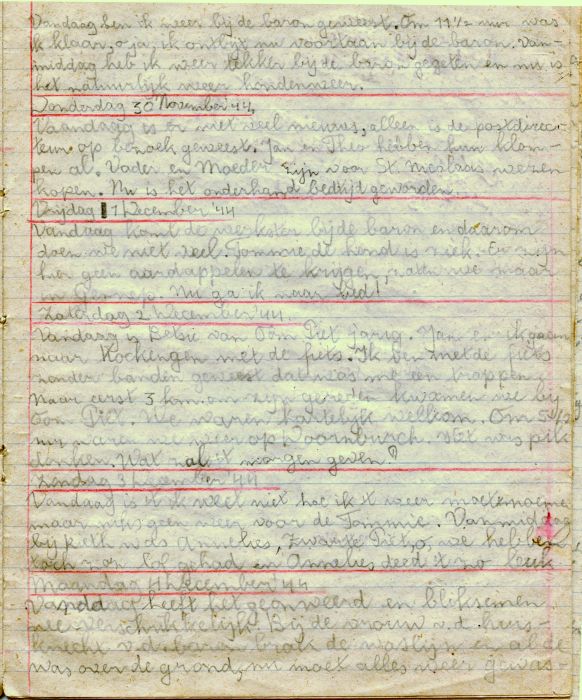 Vandaag ben ik weer bij de baron geweest. Om 11½ uur was
ik klaar, o ja, ik ontbijt nu voortaan bij de baron. Van-
middag heb ik weer lekker bij de baron gegeten en nu is
het natuurlijk weer hondenweer.
Donderdag 30 November '44
Vaandaag is er niet veel nieuws, alleen is de postdirec-
teur op bezoek geweest. Jan en Theo hebben hun klom-
pen al. Vader en Moeder zijn voor St. Nicolaas wezen
kopen. Nu is het onderhand bedtijd geworden.
Vrijdag 1 December '44
Vandaag komt de werkster bij de baron en daarom
doen we niet veel. Tommie de hond is ziek. Er zijn
hier geen aardappelen te krijgen, zaten we maar
in Gennep. Nu ga ik naar bed!
Zaterdag 2 December '44.
Vandaag is Betsie van Oom Piet jarig. Jan en ik gaan
naar Kockengen met de fiets. Ik ben met de fiets
zonder banden geweest dat was me een trappen.
Naar eerst 3 km. om zijn gereden kwamen we bij
Oom Piet. We waren hartelijk welkom. Om 5½
uur waren we weer op Doornburgh. Het was pik
donker. Wat zal 't morgen geven?
Zondag 3 December '44
Vandaag is 't ik weet niet hoe ik 't weer moet noemen
maar niks geen weer voor de Tommie. Vanmiddag
bij was Annelies, Zwarte Piet, o, we hebben
toch zo'n lol gehad en Annelies deed 't zo leuk
Maandag 4 December '44
Vanddaag heeft het geonweerd en bliksemen
nee verschrikkelijk. Bij de vrouw v.d. huis-
knecht v.d. baron brak de waslijn en al de
was over de grond, nu moet alles weer gewas-